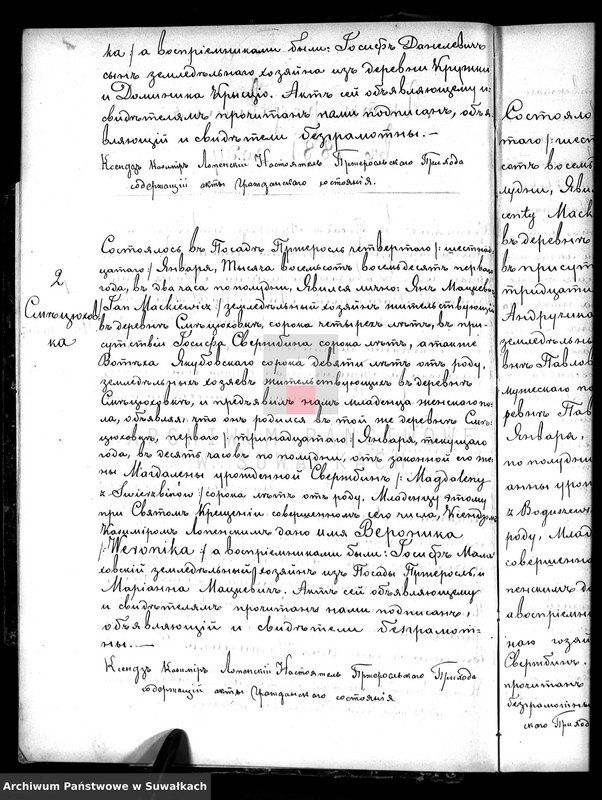 ка/ а воспріемниками были: Іосифъ Данелевичъ
сынъ земледѣльнаго хозяйна изъ деревни Кружки
и Доминика Крысцiо. Актъ сей объявляющему и
свидѣтелямъ прочитанъ нами подписанъ, объя
вляющій и свидѣтели безграмотны.—
Ксендзъ Казиміръ Лопенскій Настоятель Пржеросльскаго Прихода
содержащій акты Гражданскаго состоянія.
2
Смѣцюхов
ка
Состоялось въ Посадѣ Пржеросль четвертаго /: шестнад
цатаго :/ Января, Тысяча восемьсотъ восемьдесятъ перваго
года, въ два часа по полудни, Явился лично: Янъ Мацкевичъ
/Jan Mackiewicz :/ земледѣльный хозяйнъ жительствующій
въ деревнѣ Смѣцюховкѣ, сорока четырехъ лѣтъ, въ при-
сутствіи Іосифа Свержбина сорока лѣтъ, а также
Войтѣха Якубовскаго сорока девяти лѣтъ отъ роду,
земледѣльныхъ хозяевъ жительствующихъ въ деревнѣ
Смѣцюховкѣ, и предъявилъ намъ младенца женскаго по-
ла, объявляя, что онъ родился въ той же деревнѣ Смѣ-
цюховкѣ, перваго /: тринадцатаго :/ Января, текущаго
года, въ десять часовъ по полудни, отъ законной его же-
ны Магдалены урожденной Свержбинъ /: Magdaleny
z Swierzbinów :/ сорока лѣтъ отъ роду. Младенцу этому
при Святомъ Крещеніи совершенномъ сего числа, Ксендзомъ
Казиміромъ Лопенскимъ дано имя Вероника
/: Weronika :/ а воспріемниками были: Іосифъ Мала
ховскій земледѣльный хозяйнъ изъ Посады Пржеросль, и
Маріанна Мацкевичъ. Актъ сей объявляющему
и свидѣтелямъ прочитанъ нами подписанъ,
объявляющій и свидѣтели безграмот-
ны.—
Ксендзъ Казиміръ Лопенскій Настоятель Пржеросльскаго Прихода
содержащій акты Гражданскаго состоянія
Состояло
таго /: шест
сотъ восемь
лудни, Яви
centy Mack
въ деревнѣ
въ присут
тридцати
Андручика
земледѣльн
внѣ Павлов
мужескаго по
ревнѣ Пав
Января,
по полудни
анны урож
z Wodziczów
роду, Млад
совершенно
пенскимъ да
а воспріемн
наго хозяй
Свержбинъ.
прочитанъ
безграмотны
скаго Приход
ARCHIWUM PAŃSTWOWE
W SUWAŁKACH
Archiwum Państwowe w Suwałkach